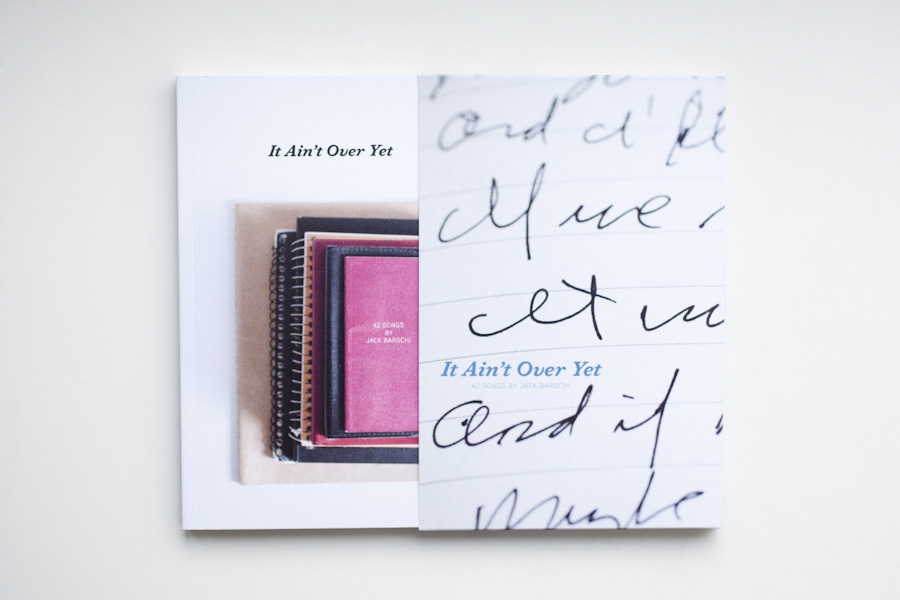 It Ain't Over Yet
42 SONGS
BY
JACK BARSCHI
And I'
It
It Ain't Over Yet
42 SONGS BY JACK BARSCHI
And if
Maybe